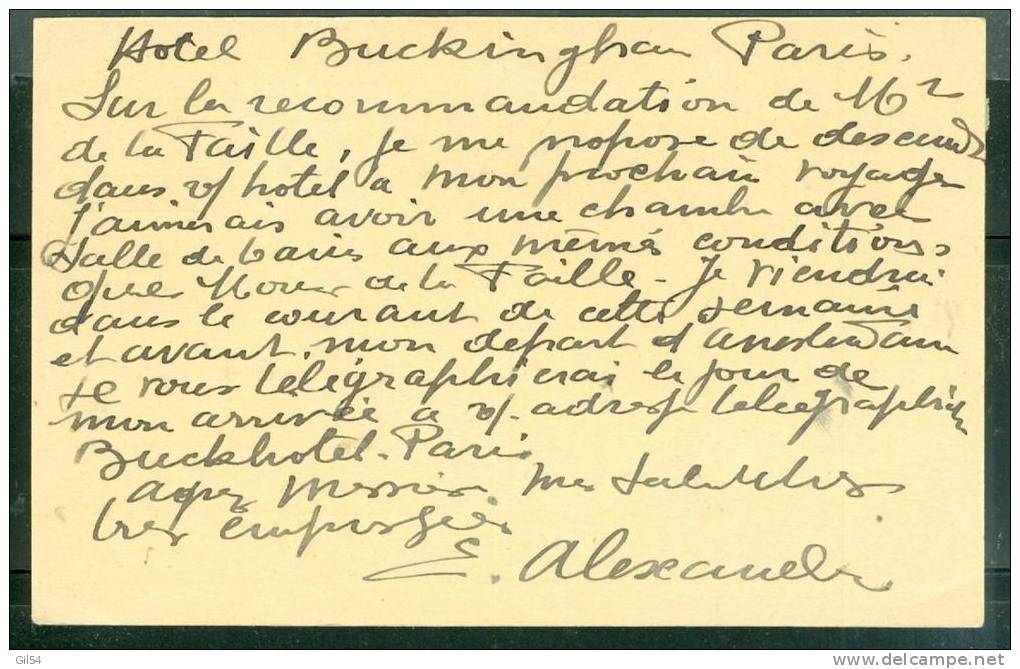 Hotel Buckingham Paris.
Sur la recommandation de Mr
de la Faille, je me propose de descendre
dans v/ hotel a mon prochain voyage
J'aimerais avoir une chambre avec
Salle de bains aux mêmes conditions
que Monsr de la Faille. Je viendrai
dans le courant de cette semaine
et avant mon depart d'Amsterdam
je vous telégraphierai le jour de
mon arrivée à v/. adresse telegraphique
Buckhotel-Paris
Agreez Messieurs mes salutations
tres empressées
E. Alexander
Gil54
www.delcampe.net